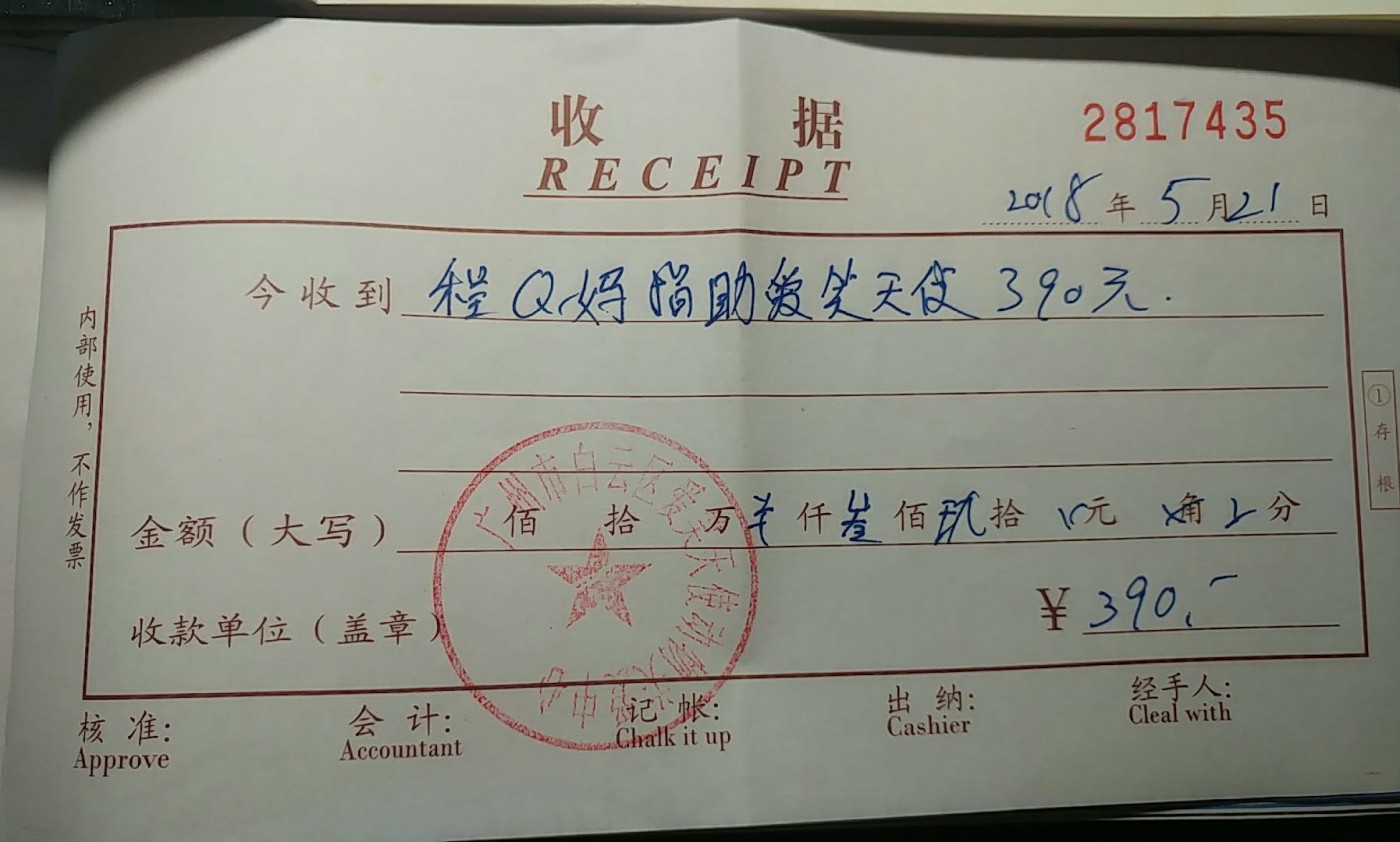 收据
RECEIPT
2817435
2018年5月21日
今收到 程Q妈捐助爱笑天使390元.
内部使用,不作发票
①存根
金额(大写) 佰 拾 万 羊仟叁佰玖拾 元 角 分
收款单位(盖章)
¥390.-
广州市白云区爱笑天使动
中心
核准: 会计: 记帐: 出纳: 经手人:
Approve Accountant Chalk it up Cashier Cleal with